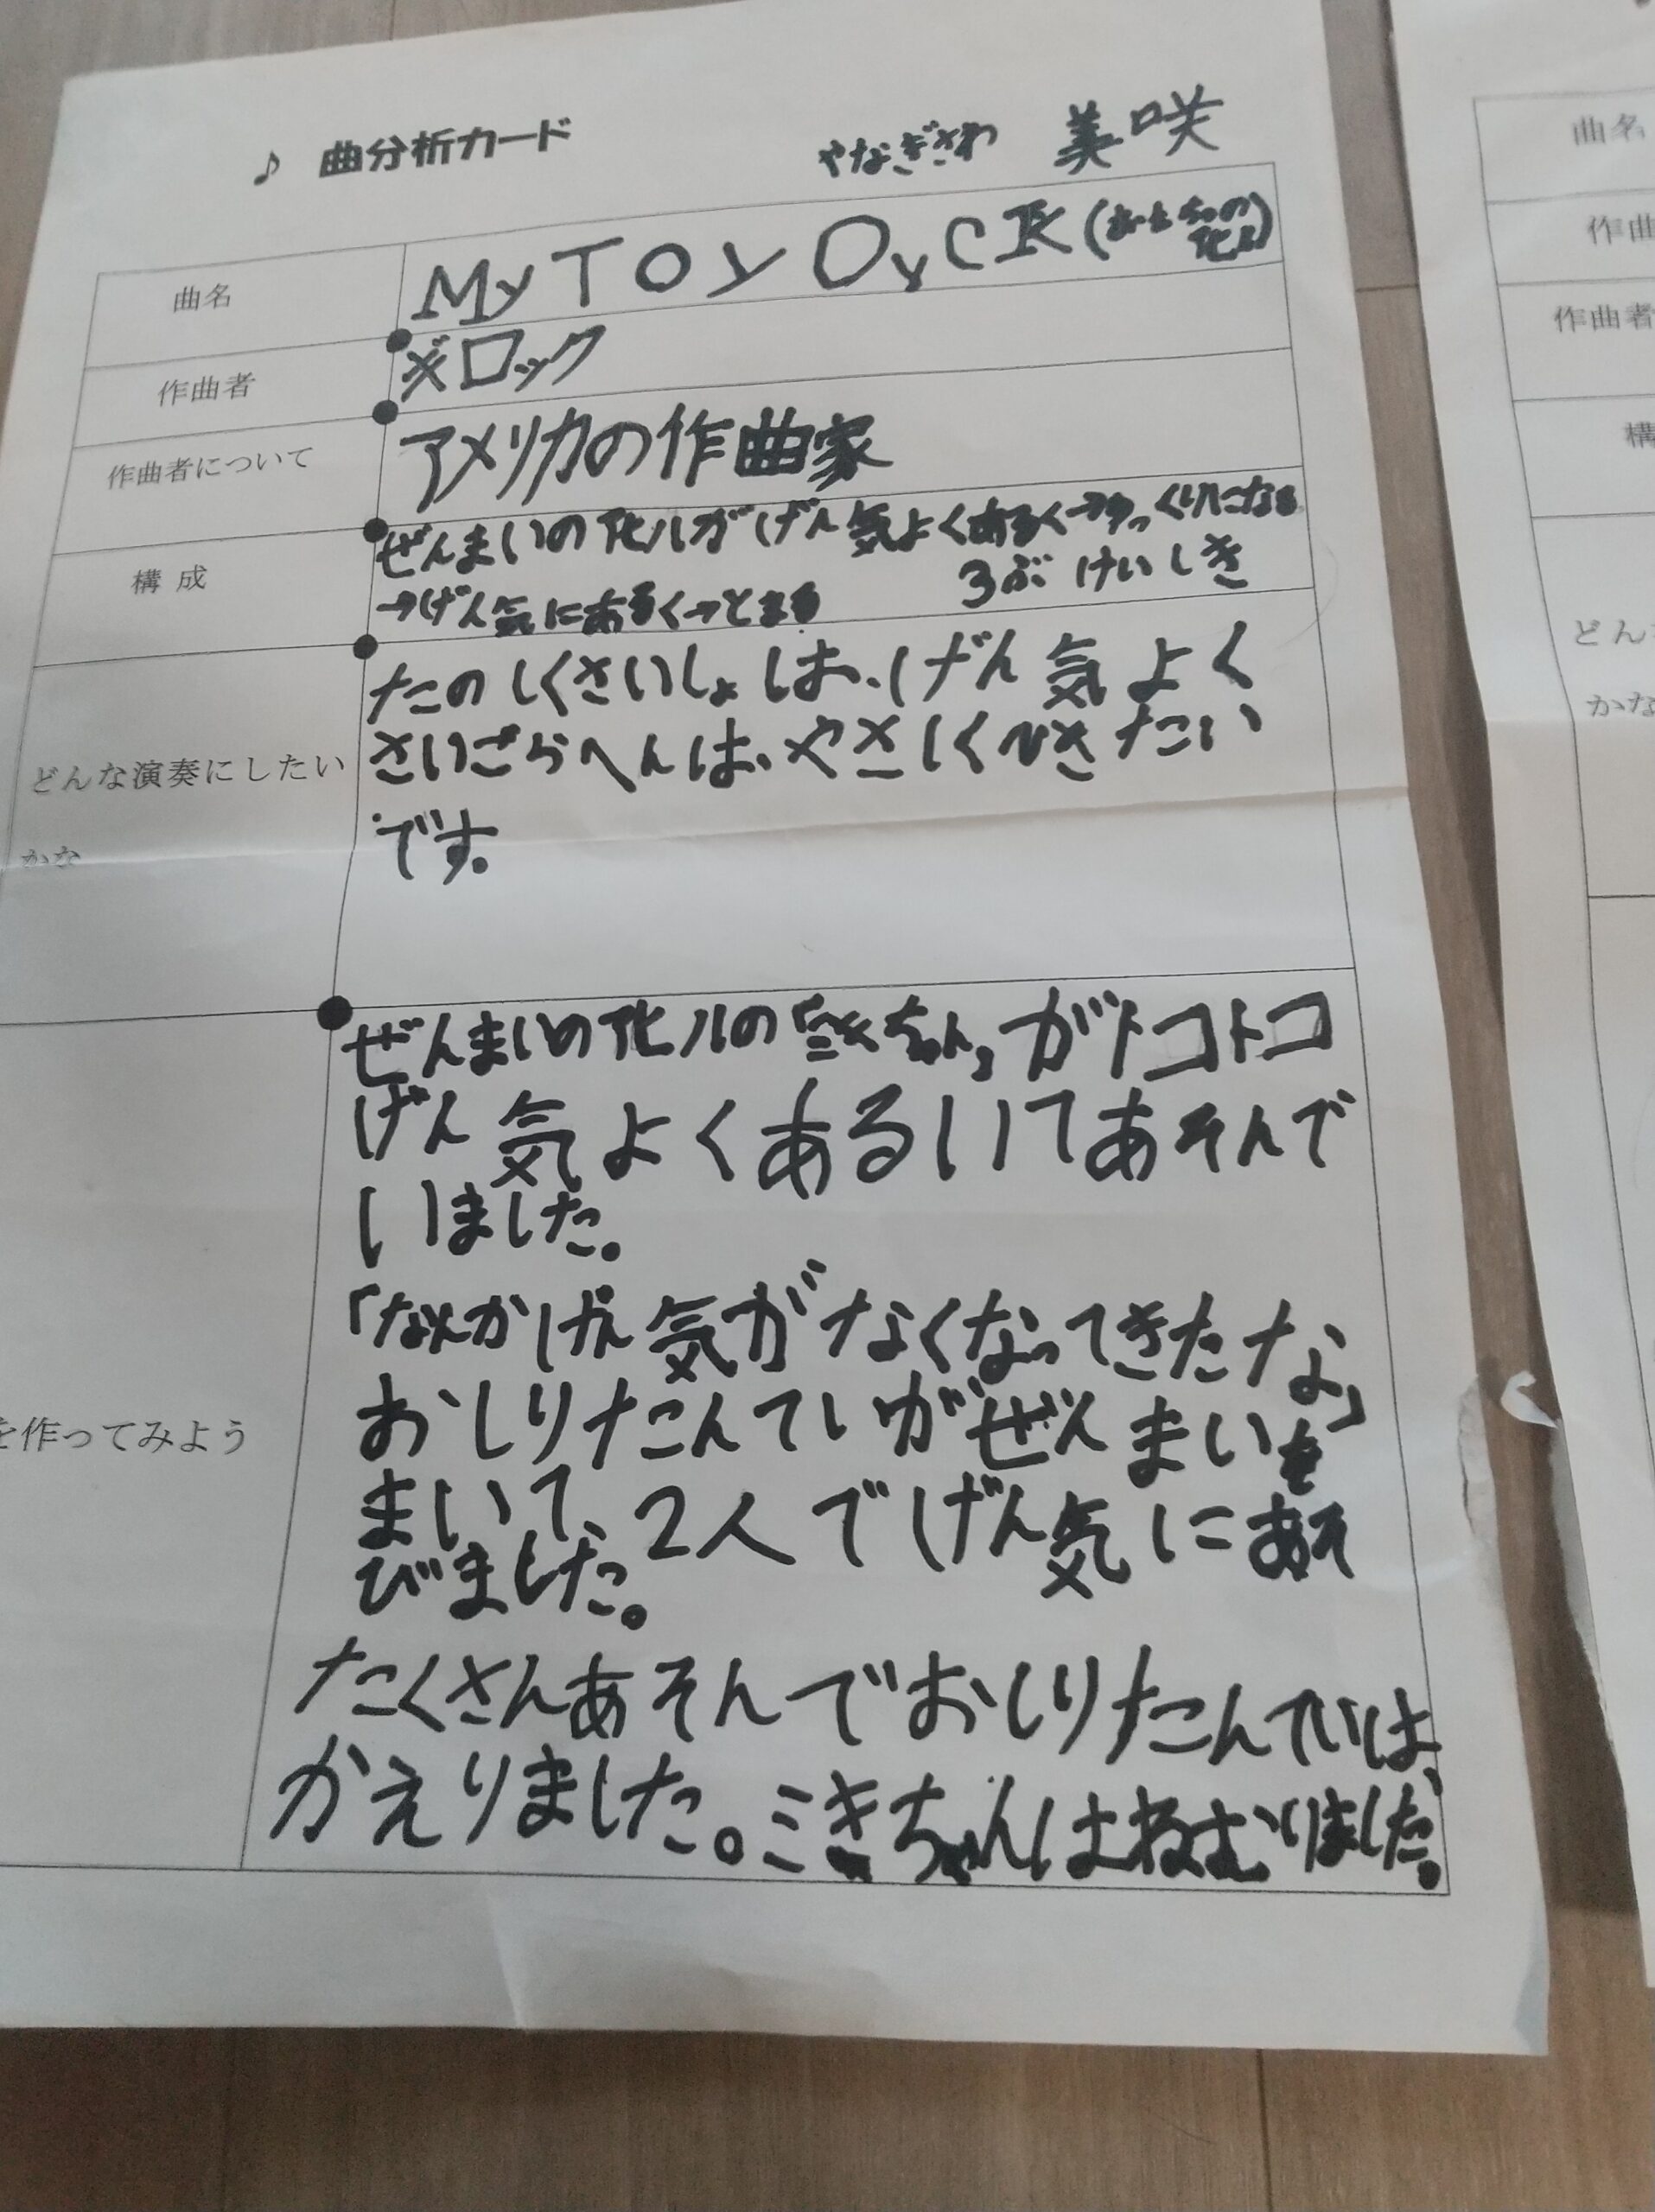 ♪ 曲分析カード やなぎさわ 美咲
曲名 My TOy DyCK (おもちゃの アヒル)
作曲者 ギロック
作曲者について アメリカの作曲家
構成 ぜんまいのアヒルがげん気よくあるく→ゆっくりになる
→げん気にあるく→とまる 3ぶけいしき
どんな演奏にしたい
かな
たのしくさいしょは、げん気よく
さいごらへんは、やさしくひきたい
です。
を作ってみよう
ぜんまいのアヒルの「ミキちゃん」がトコトコ
げん気よくあるいてあそんで
いました。
「なんかげん気がなくなってきたな」
おしりたんていがぜんまいを
まいて、2人でげん気にあそ
びました。
たくさんあそんでおしりたんていは、
かえりました。ミキちゃんはねむりました。
曲名
作曲
作曲者
構
どん
かな